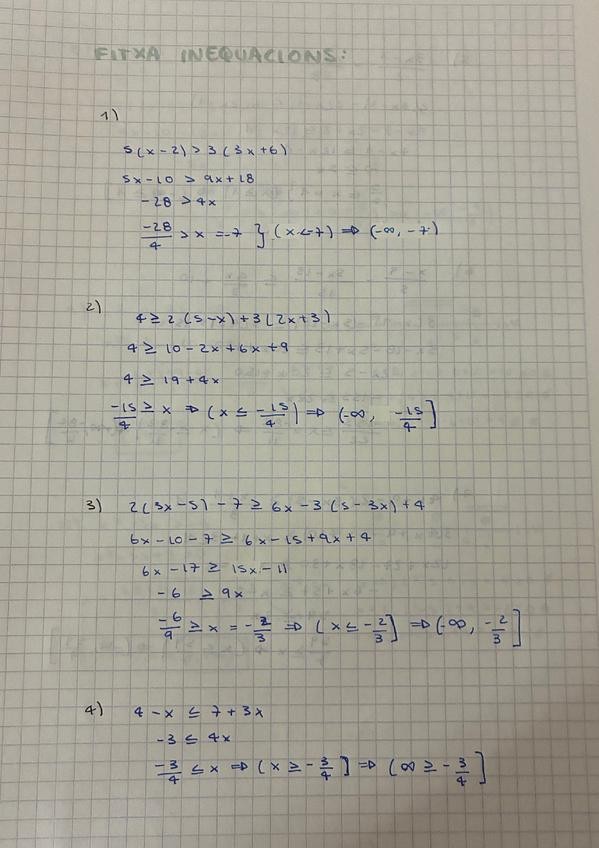 FITXA INEQUACIONS:
1)
5(x-2) > 3(3x+6)
5x-10 > 9x+18
-28 > 4x
-28/4 > x = -7 } (x<-7) ⇒ (-∞, -7)
2) 4 ≥ 2(5-x)+3(2x+3)
4 ≥ 10-2x+6x+9
4 ≥ 19+4x
-15/4 ≥ x ⇒ (x ≤ -15/4) ⇒ (-∞, -15/4]
3) 2(3x-5)-7 ≥ 6x-3(5-3x)+4
6x-10-7 ≥ 6x-15+9x+4
6x-17 ≥ 15x-11
-6 ≥ 9x
-6/9 ≥ x = -2/3 ⇒ (x ≤ -2/3] ⇒ (-∞, -2/3]
4) 4-x ≤ 7+3x
-3 ≤ 4x
-3/4 ≤ x ⇒ (x ≥ -3/4] ⇒ (∞ ≥ -3/4]